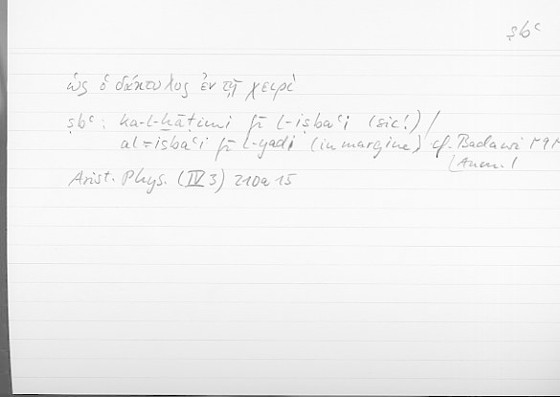 ṣbʿ
ὡς ὁ δάκτυλος ἐν τῇ χειρί
ṣbʿ: ka-l-ḫātimi fī l-iṣbaʿi (sic!) /
al=iṣbaʿi fī l-yadi (in margine) cf. Badawi
Anm. 1
Arist. Phys. (IV 3) 210a 15